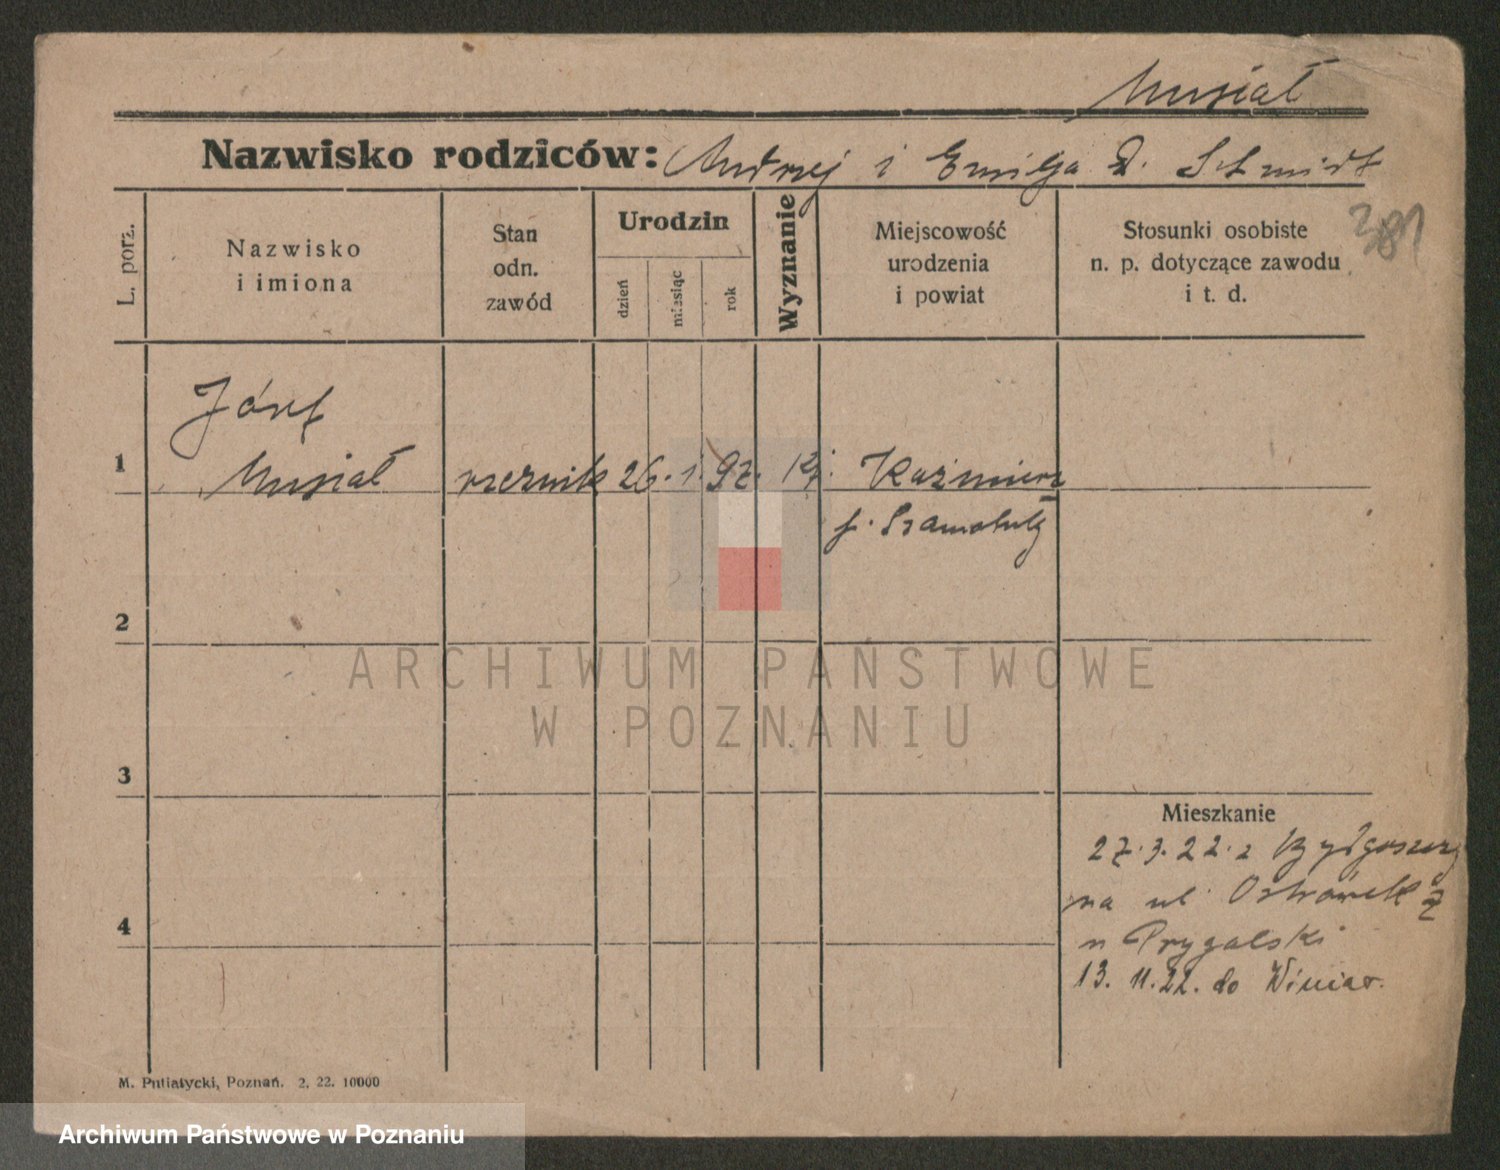 Musiał
Nazwisko rodziców: Andrzej i Emilja d. Schmidt
L. porz.
Nazwisko
i imiona
Stan
odn.
zawód
Urodzin
dzień
miesiąc
rok
Wyznanie
Miejscowość
urodzenia
i powiat
Stosunki osobiste
n. p. dotyczące zawodu
i t. d.
381
Józef
1 Musiał rzeznik 26. 1. 97. Kt. Kaźmierz
p. Szamotuły
2
ARCHIWUM PAŃSTWOWE
W POZNANIU
3
Mieszkanie
27.3.22. z Bydgoszczy
na ul Ostrówek
4
u Prygalski
13. 11. 22. do Winiar.
M. Putiatycki, Poznań. 2, 22. 10000
Archiwum Państwowe w Poznaniu